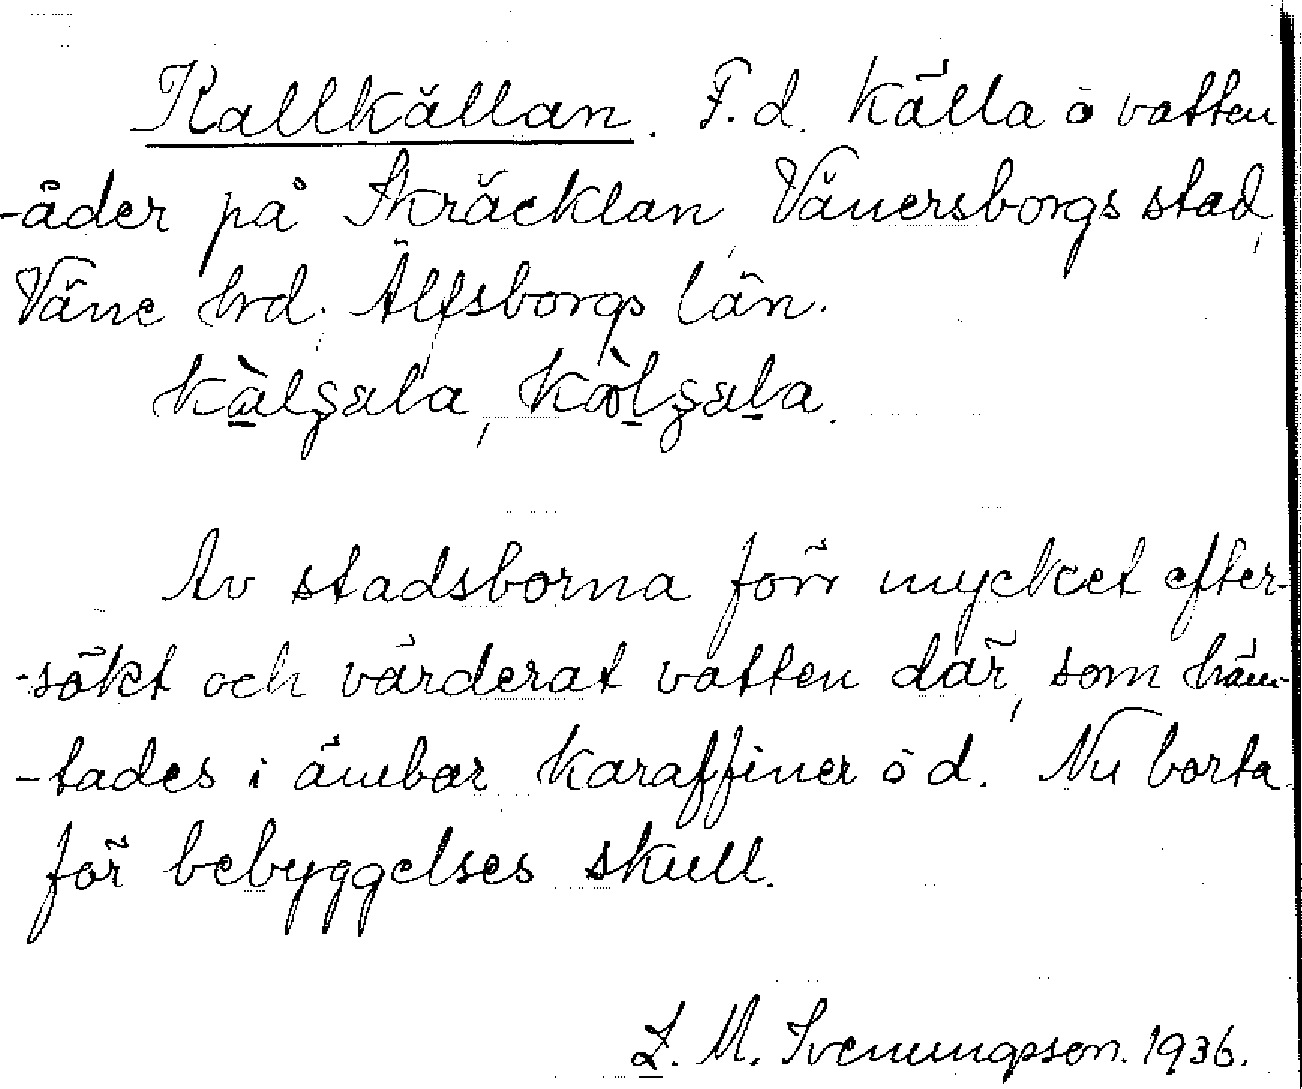 Kallkällan. F.d. källa o vatten
-åder på Skräcklan, Vänersborgs stad,
Väne hrd, Älfsborgs län.
Av stadsborna förr mycket efter-
-sökt och värderat vatten där, som häm-
-tades i ämbar karaffiner o d. Nu borta
för bebyggelses skull.
L. M. Svenungsson. 1936.